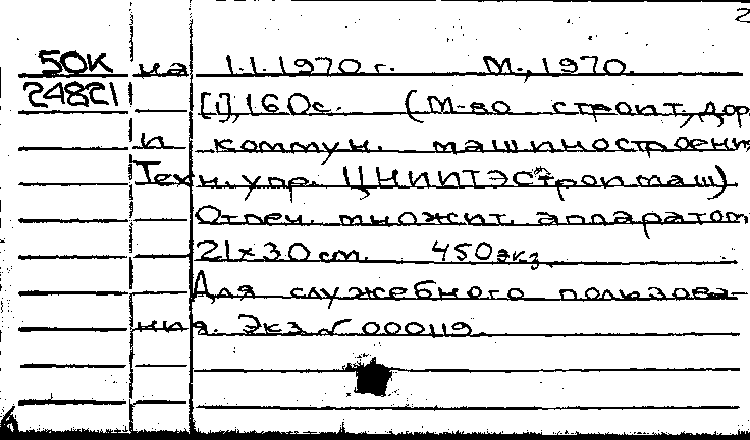 2
50К на 1.1.1970 г. М., 1970.
24821 [1], 160с. (М-во строит., дор
и коммун. машиностроени
Техн. упр. ЦНИИТЭСтроймаш)
Отпеч. множит. аппаратом
21х30 см. 450 экз.
Для служебного пользова-
ния. Экз № 000119.